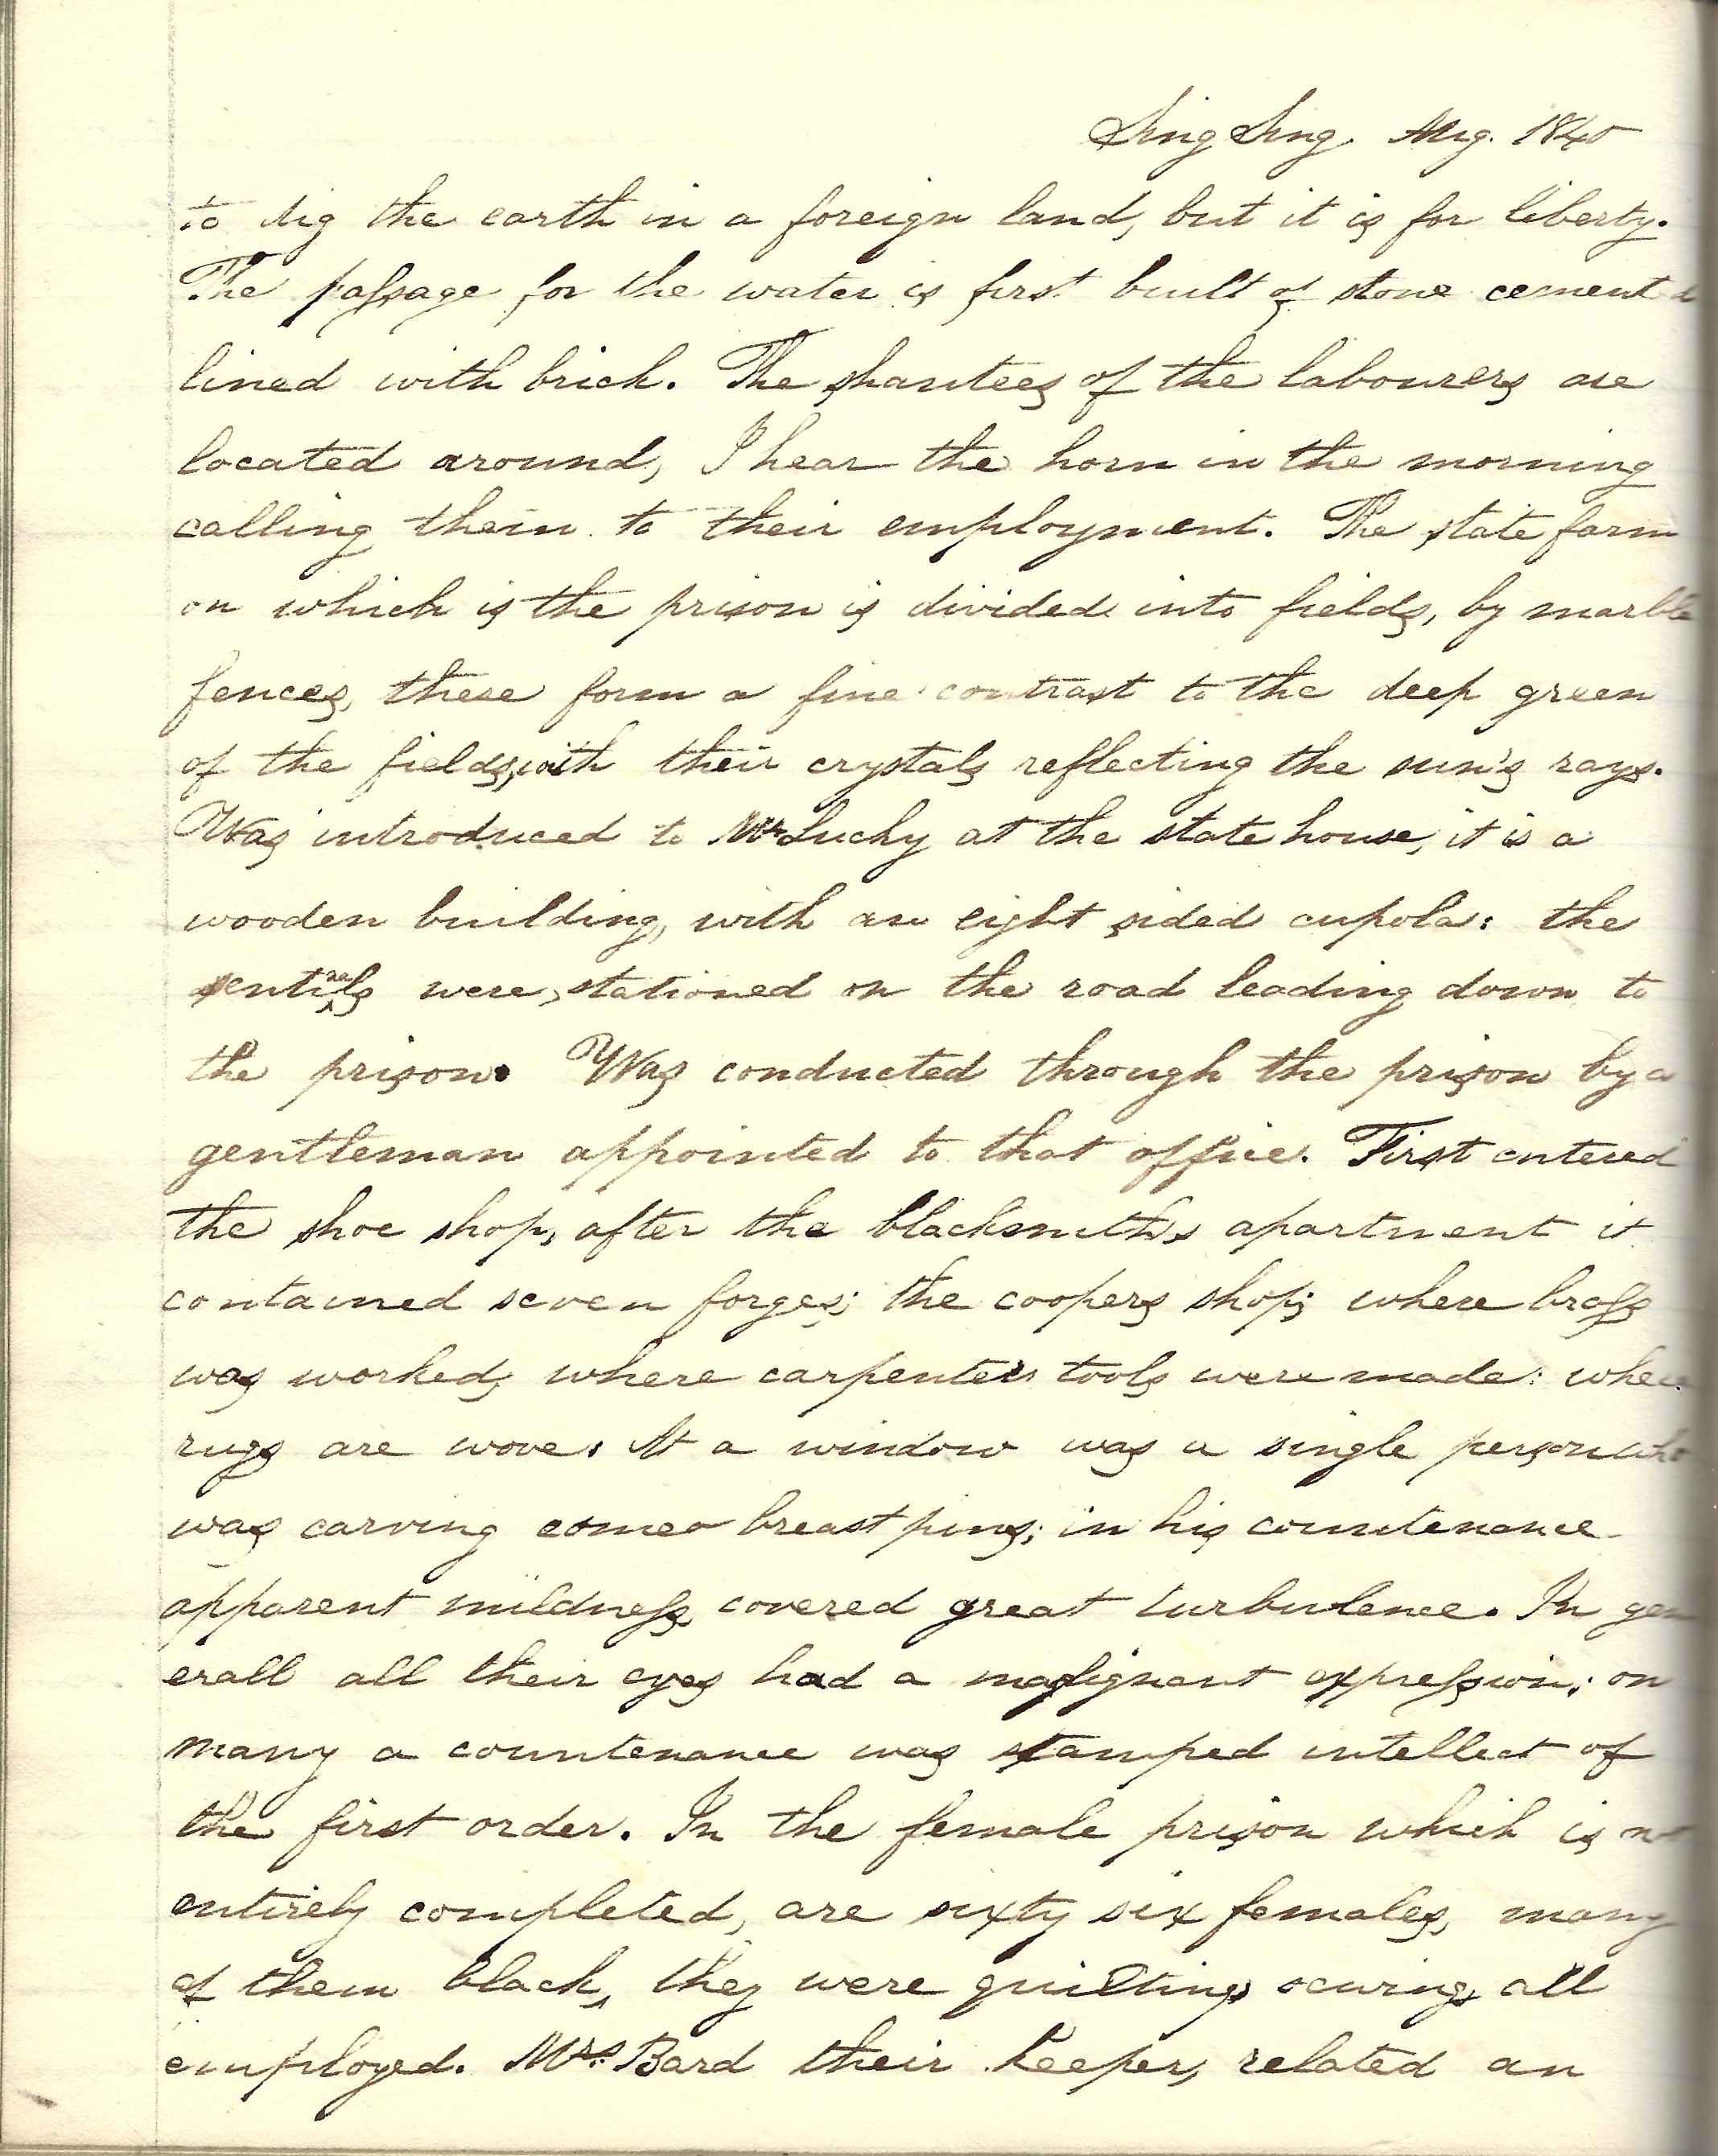 Sing Sing. Aug. 1840
to dig the earth in a foreign land, but it is for liberty.
The passage for the water is first built of stone cement
lined with brick. The shantees of the labourers are
located around, I hear the horn in the morning
calling them to their employment. The state farm
on which is the prison is divided into fields, by marble
fences, these form a fine contrast to the deep green
of the fields, with their crystals reflecting the sun's rays.
Was introduced to Mr Lucky at the state house, it is a
wooden building, with an eight sided cupola: the
sentinals were stationed on the road leading down to
the prison. Was conducted through the prison by a
gentleman appointed to that office. First entered
the shoe shop, after the blacksmith's apartment it
contained seven forges; the coopers shop; where brass
was worked, where carpenters tools were made: where
rugs are wove. At a window was a single person who
was carving comeo breast pins; in his countenance
apparent mildness covered great turbulence. In gen
erall all their eyes had a malignant expression; on
many a countenance was stamped intellect of
the first order. In the female prison which is not
entirely completed, are sixty six females, many
of them black, they were quilting, sewing, all
employed. Mrs. Bard their keeper, related an